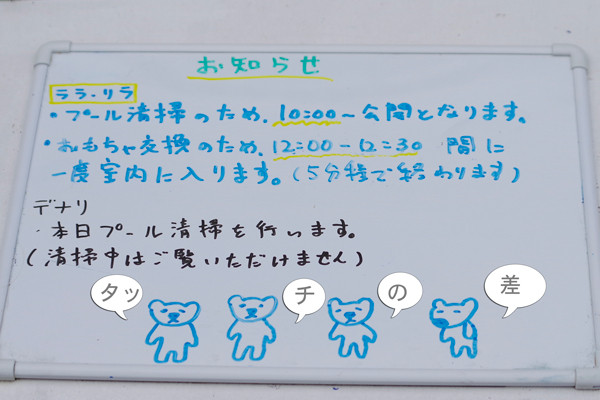 お知らせ
ララ・リラ
・プール清掃のため、10:00~公開となります。
・おもちゃ交換のため、12:00-12:30 間に
一度室内に入ります。(5分程で終わります)
デナリ
・本日プール清掃を行います。
(清掃中はご覧いただけません)
タッ チ の 差